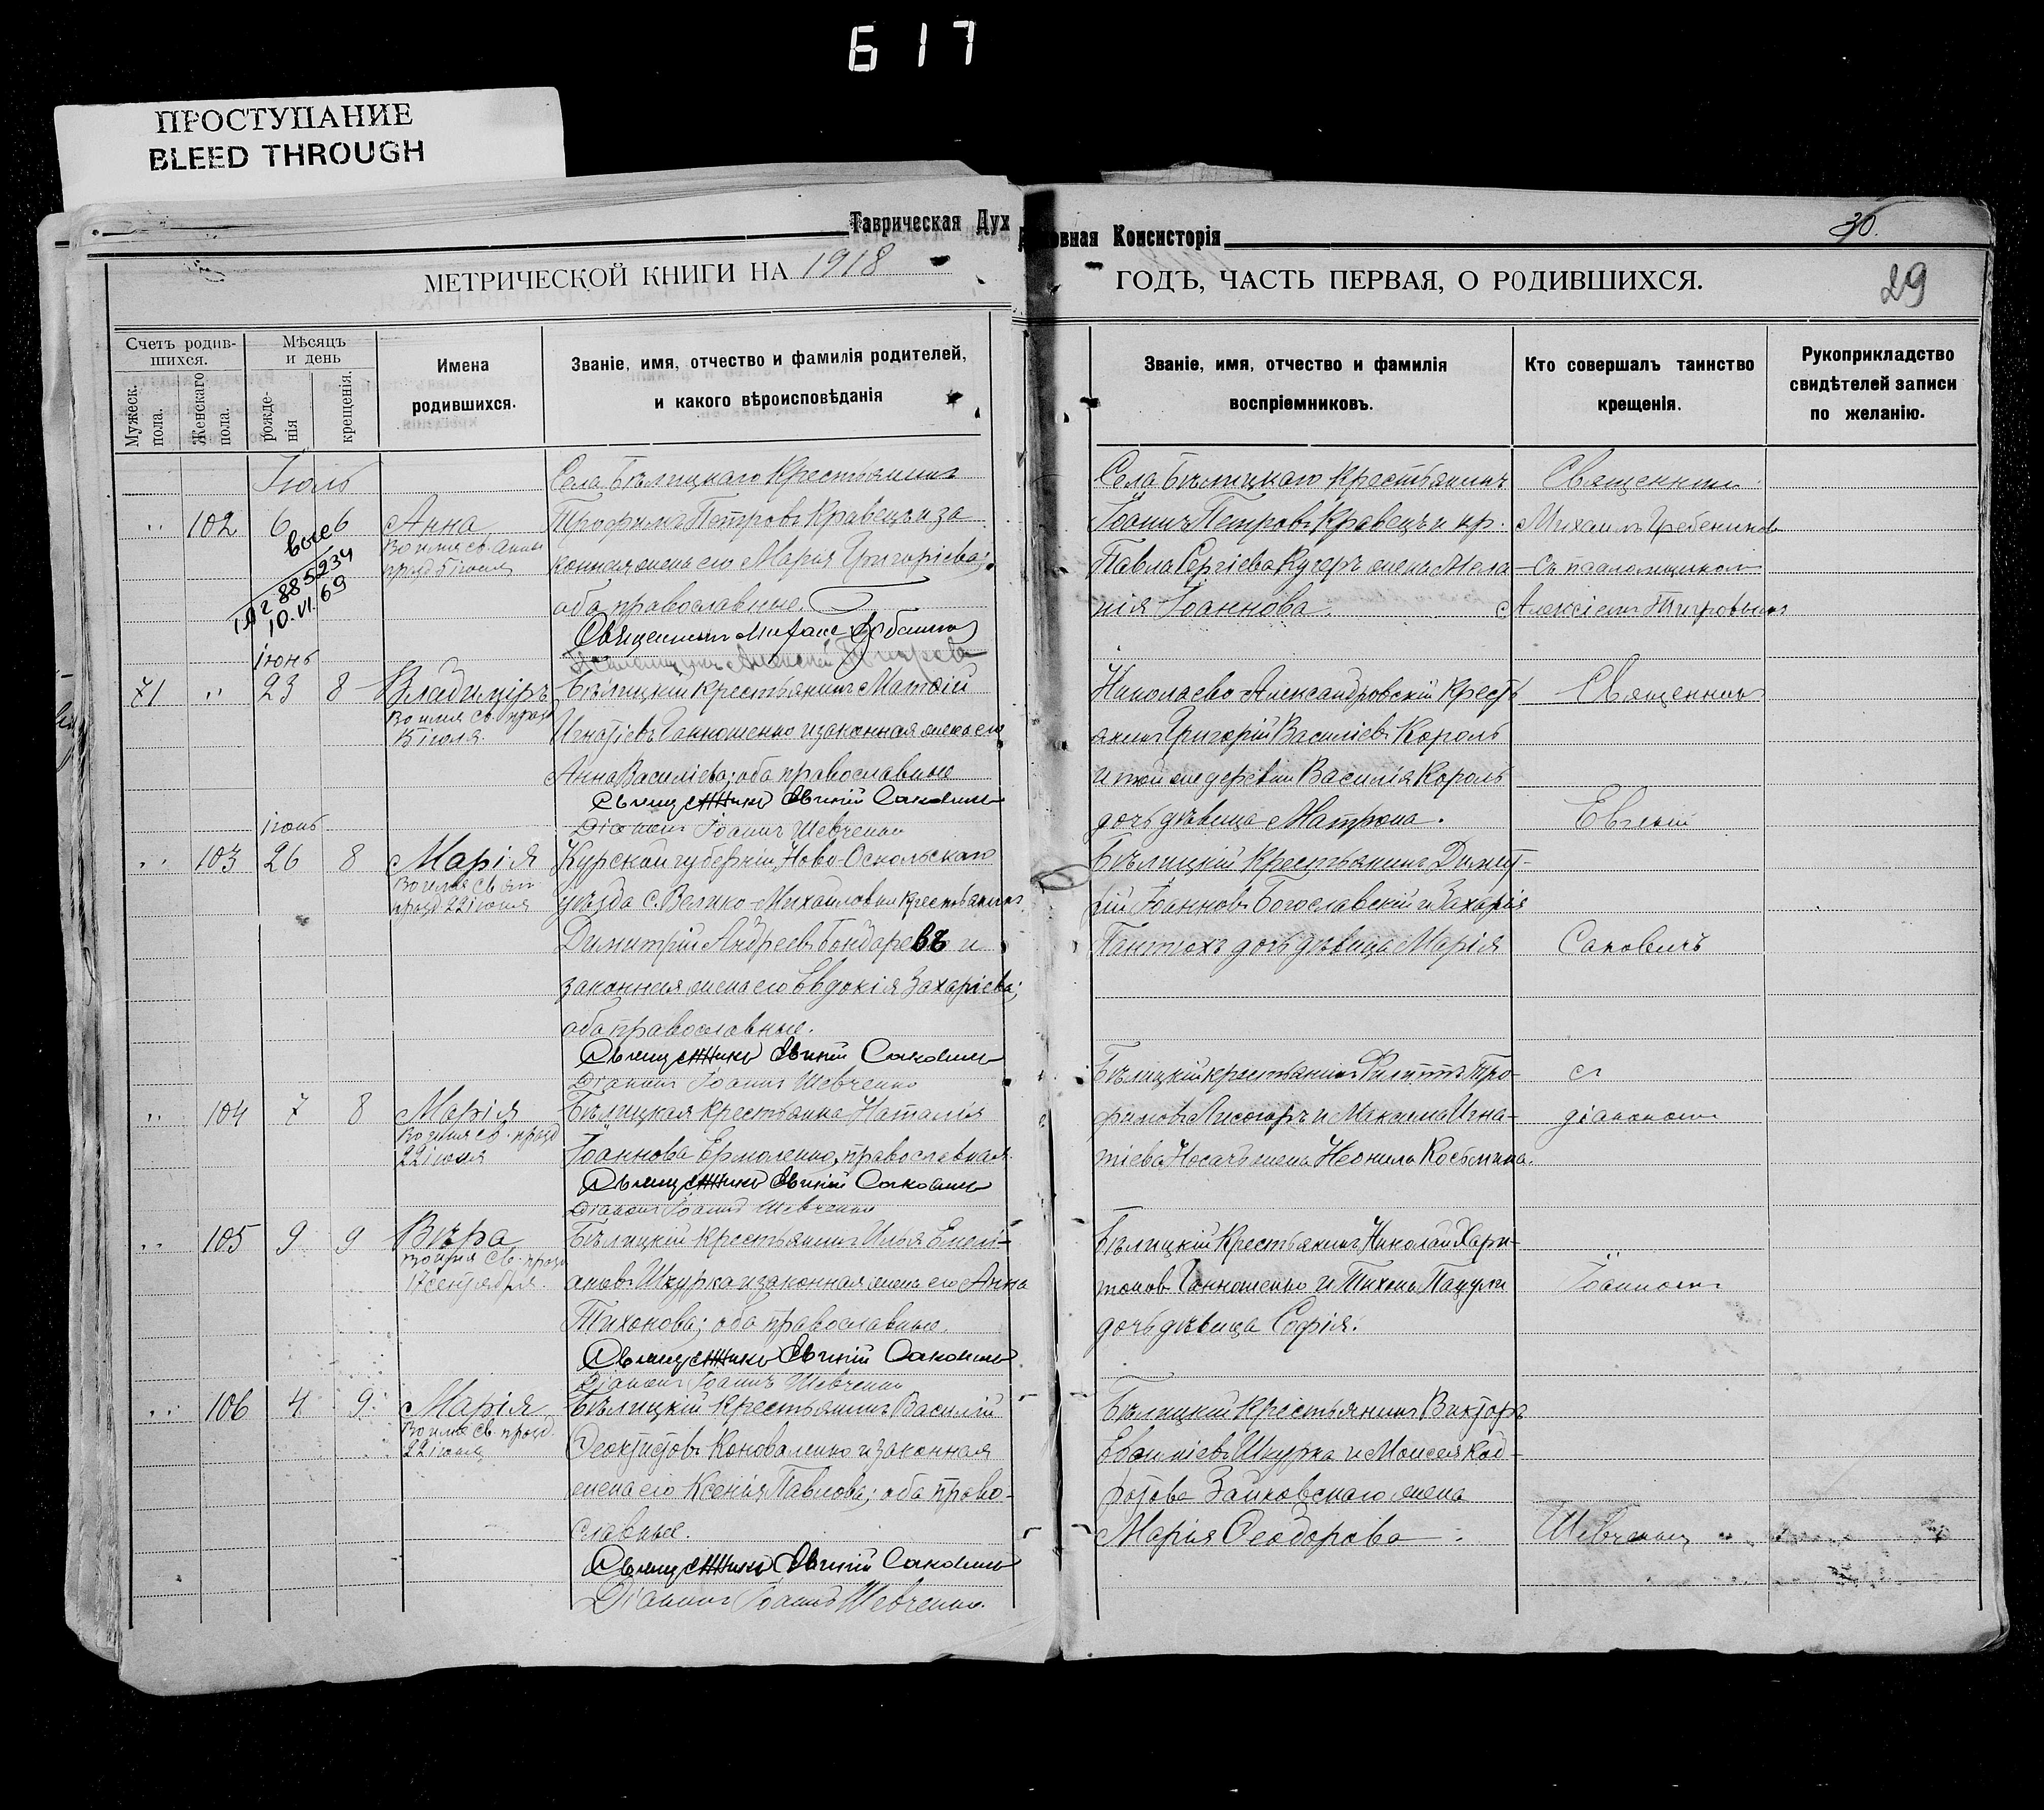 617
ПРОСТУПАНИЕ
BLEED THROUGH
Таврическая Дух
овная Консисторія
30.
МЕТРИЧЕСКОЙ КНИГИ НА 1918
ГОДЪ, ЧАСТЬ ПЕРВАЯ, О РОДИВШИХСЯ.
29
Счетъ родив-
шихся.
Мужеск. пола.
Женскаго пола.
Мѣсяцъ
и день
рожде-
нія
крещенія.
Имена
родившихся.
Званіе, имя, отчество и фамилія родителей,
и какого вѣроисповѣданія
Званіе, имя, отчество и фамилія
воспріемниковъ.
Кто совершалъ таинство
крещенія.
Рукоприкладство
свидѣтелей записи
по желанію.
Іюль
Села Бѣлицкаго Крестьянинъ
102 6 6 Анна
Трофимъ Петровъ Кравецъ и за
Во имя св. Анны
конная жена его Марія Григоріева;
885234
10.VI.69
оба православные.
Села Бѣлицкаго Крестьянинъ
Іоаннъ Петровъ Кравецъ и кр.
Павла Сергіева Кучеръ жена Мела-
нія Іоаннова.
Священникъ
Михаилъ Гребенниковъ
Съ псаломщикомъ
Алексіемъ
Іюнь
71 " 23 8 Владиміръ
Во имя св. празд
15 іюля.
Бѣлицкій крестьянинъ Матѳій
Игнатіевъ Ганношенко и законная жена его
Анна Василіева; оба православные
Священникъ Евгеній Саковичъ
Діаконъ Іоаннъ Шевченко
Николаево Александровскій Кресть
янинъ Григорій Василіевъ Король
и той же деревни Василія Король
дочь дѣвица Матрона.
Священникъ
Евгеній
Іюнь
" 103 26 8 Марія
празд 22 іюля
Курской губерніи, Ново-Оскольскаго
уѣзда с. Велико-Михайловки крестьянинъ
Димитрій Андреевъ Бондаревъ и
законная жена его Евдокія Захаріева;
оба православные.
Священникъ Евгеній Саковичъ
Діаконъ Іоаннъ Шевченко
Бѣлицкій Крестьянинъ Димит-
рій Іоанновъ Богославскій и Захарія
Пантюхъ дочь дѣвица Марія
Саковичъ
" 104 7 8 Марія
Во имя св. празд
22 іюля
Бѣлицкая крестьянка Наталія
Іоаннова Ермоленко, православная
Священникъ Евгеній Саковичъ
Діаконъ Іоаннъ Шевченко
Бѣлицкій крестьянинъ Филиппъ Тро-
фимовъ Лисогоръ и Михаила Игна-
тіева Носачъ жена Неонила Косьмина.
съ
діакономъ
" 105 9 9 Вѣра
Во имя св. празд
17 сентября.
Бѣлицкій крестьянинъ Илья Емелі-
ановъ Шкурка и законная жена его Анна
Тихонова; оба православные.
Священникъ Евгеній Саковичъ
Діаконъ Іоаннъ Шевченко
Бѣлицкій Крестьянинъ Николай Хари-
тоновъ Ганношенко и Тихона Пацули
дочь дѣвица Софія.
Іоанномъ
" 106 4 9 Марія
Во имя св. празд.
22 іюля
Бѣлицкій крестьянинъ Василій
Ѳеоктистовъ Коноваленко и законная
жена его Ксенія Павлова; оба право-
славные.
Священникъ Евгеній Саковичъ
Діаконъ Іоаннъ Шевченко.
Бѣлицкій Крестьянинъ Викторъ
Шкурка и Моисея Код-
ратова Зайковскаго жена
Марія Ѳеодорова
Шевченко